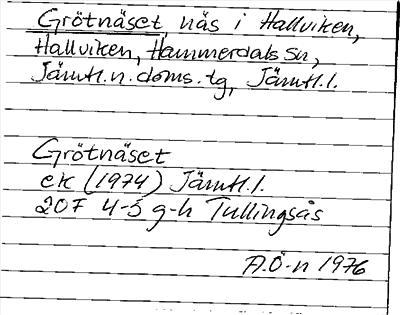 Grötnäset näs i Hallviken,
Hallviken, Hammerdals sn,
Jämtl.n.doms.tg, Jämtl.l.
Grötnäset
ek (1974) Jämtl.l.
20F 4-5 g-h Tullingsås
A.Ö-n 1976